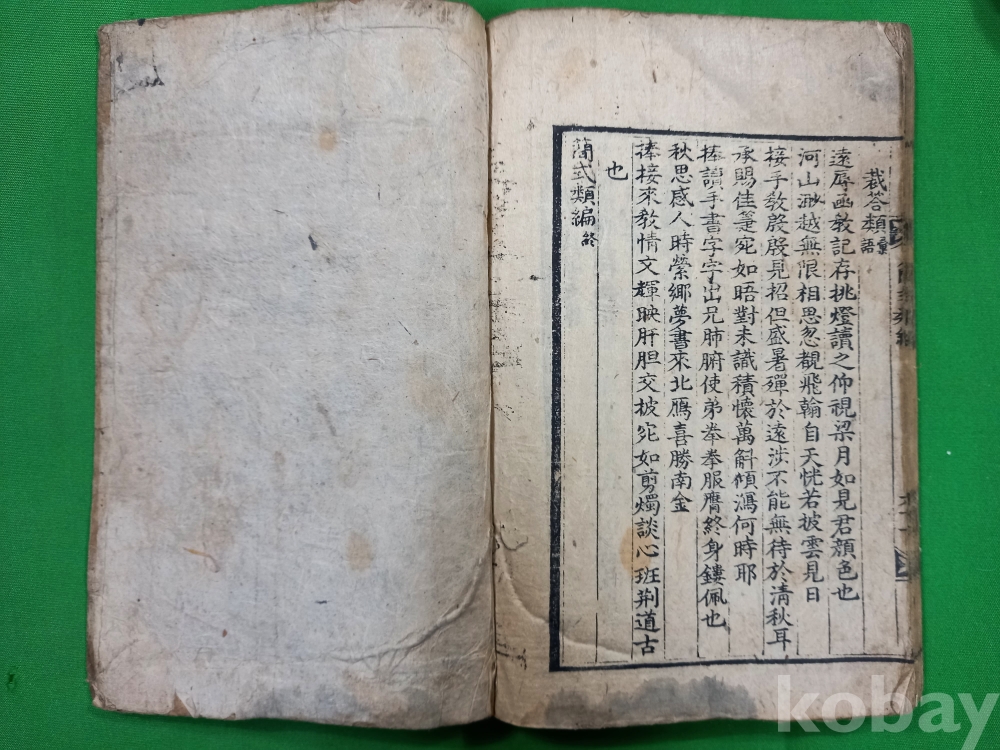 裁答類彙語
遠辱函教記存挑燈讀之仰視梁月如見君顔色也
河山逈越無限相思忽覩飛翰自天恍若披雲見日
接手敎殷殷見招但盛暑殫於遠涉不能無待於清秋耳
承賜佳箑宛如晤對未識積懷萬斛傾瀉何時耶
捧讀手書字字出兄肺腑使弟拳拳服膺終身鏤佩也
秋思感人時縈鄉夢書來北鴈喜勝南金
捧接來敎情文輝映肝胆交披宛如剪燭談心班荆道古
也
簡式類編終
kobay